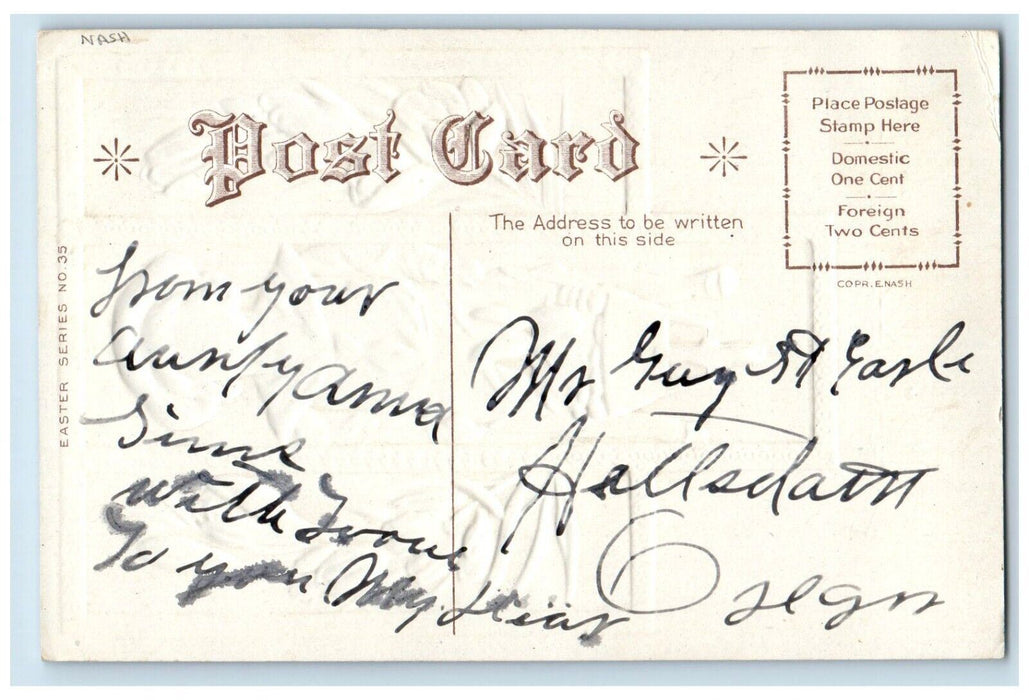 NASH
Post Card
Place Postage
Stamp Here
Domestic
One Cent
Foreign
Two Cents
COPR. E. NASH
The Address to be written
on this side
EASTER SERIES NO. 35
from your
Aunty
Sims
with
To you My Dear
Mr Guy